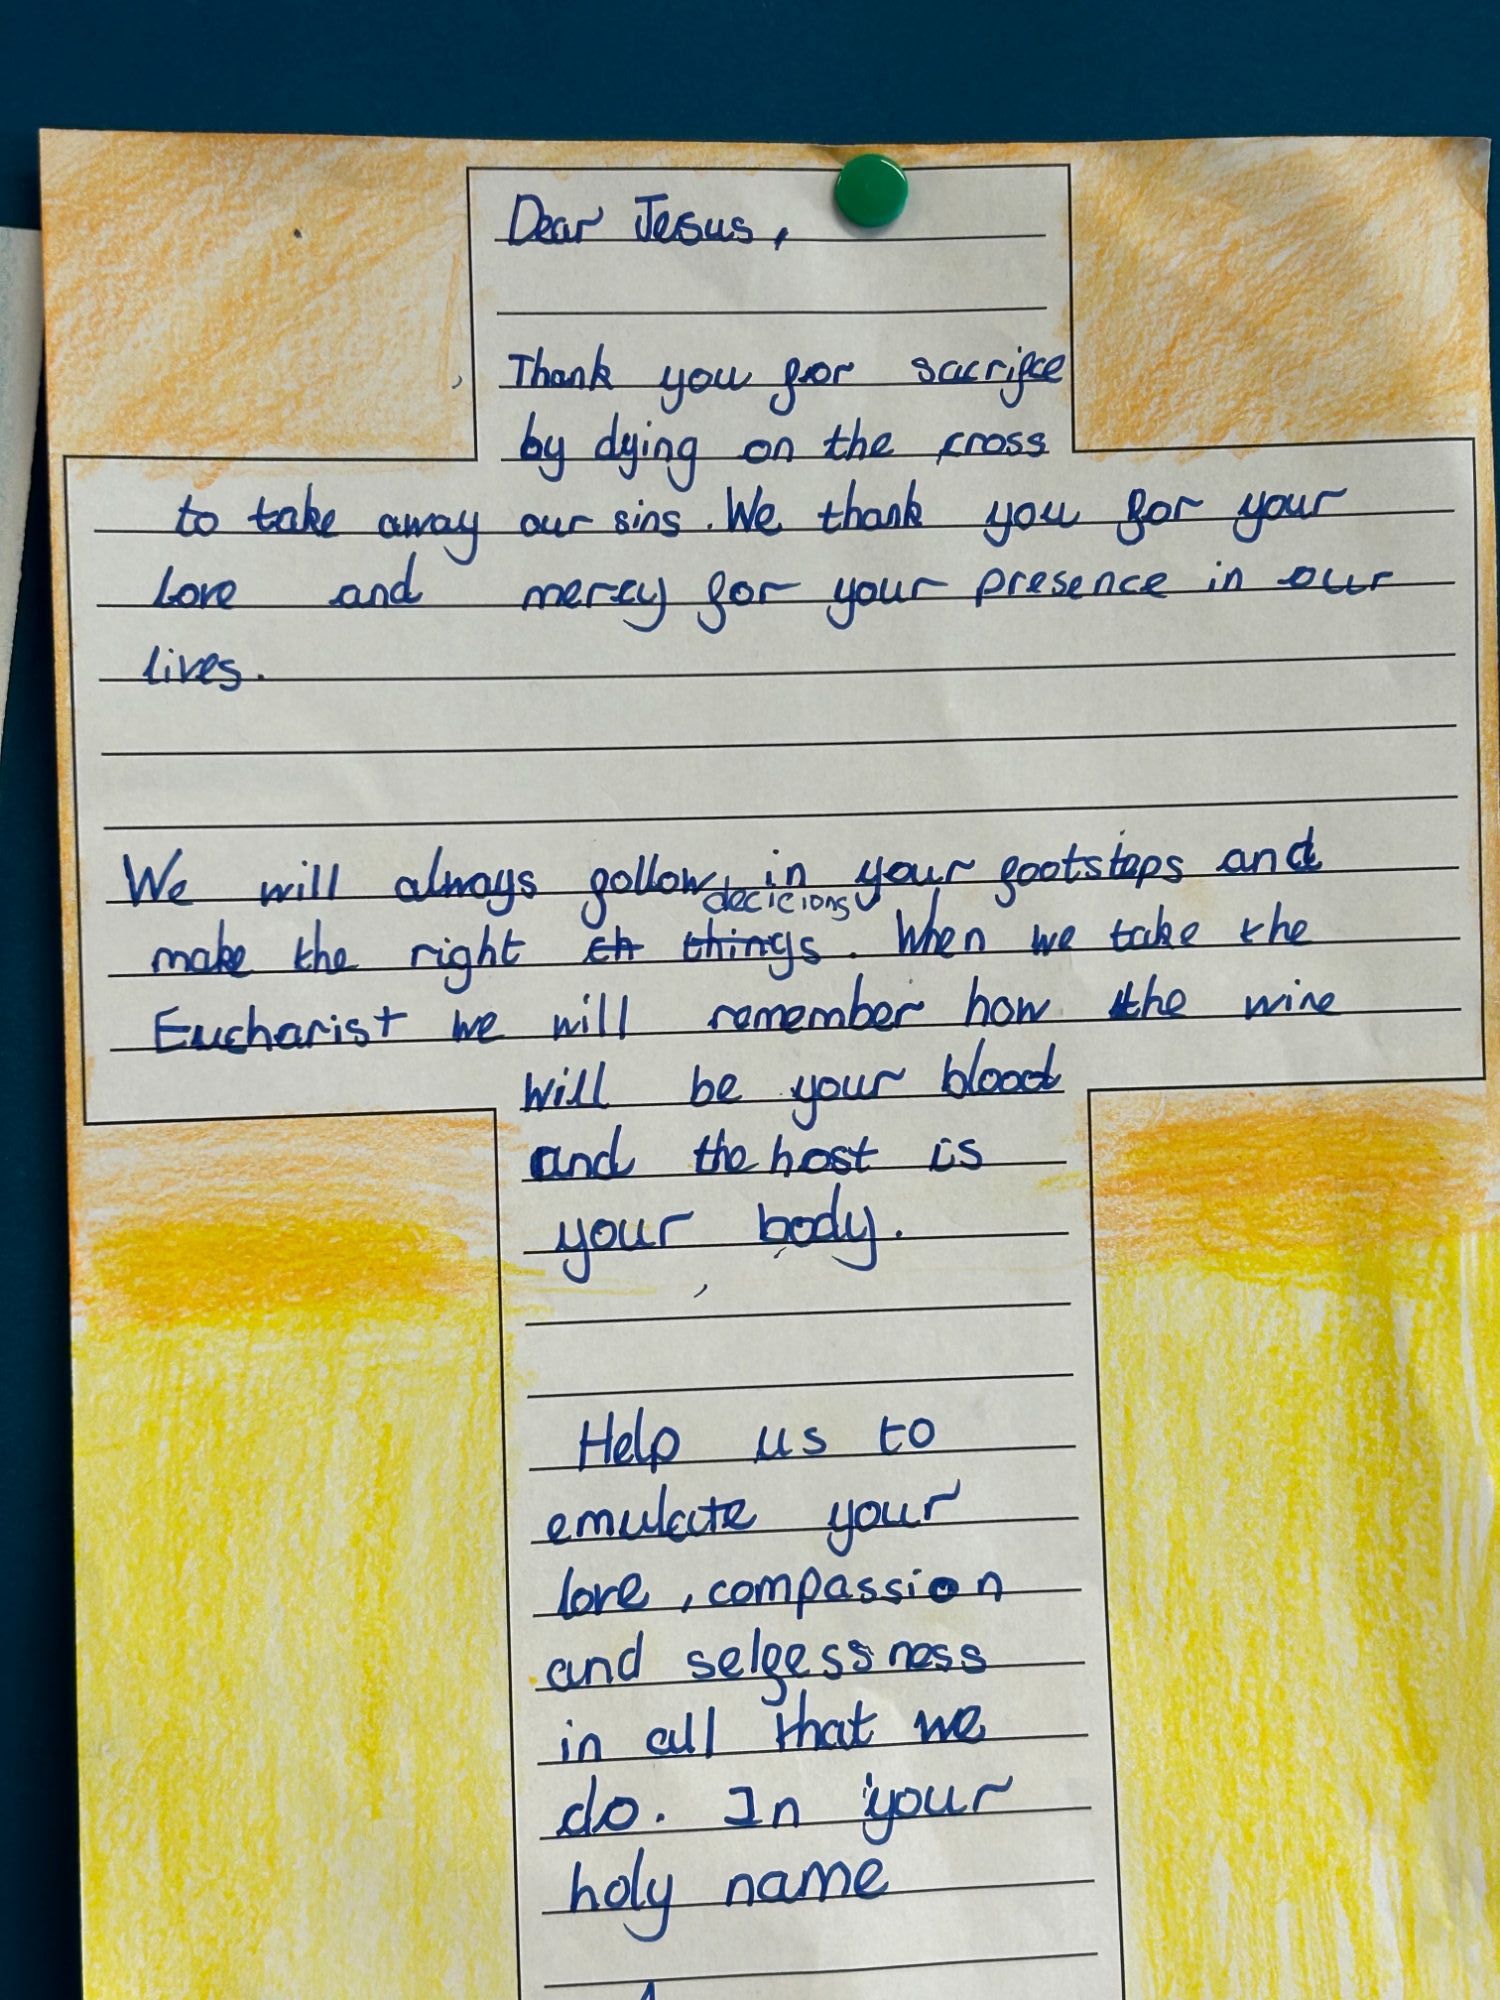 Dear Jesus,
Thank you for sacrifce
by dying on the cross
to take away our sins. We thank you for your
love and mercy for your presence in our
lives.
We will always follow in your footsteps and
decicions
make the right th things. When we take the
Eucharist we will remember how the wine
will be your blood
and the host is
your body.
Help us to
emulate your
love, compassion
and selfessness
in all that we
do. In your
holy name